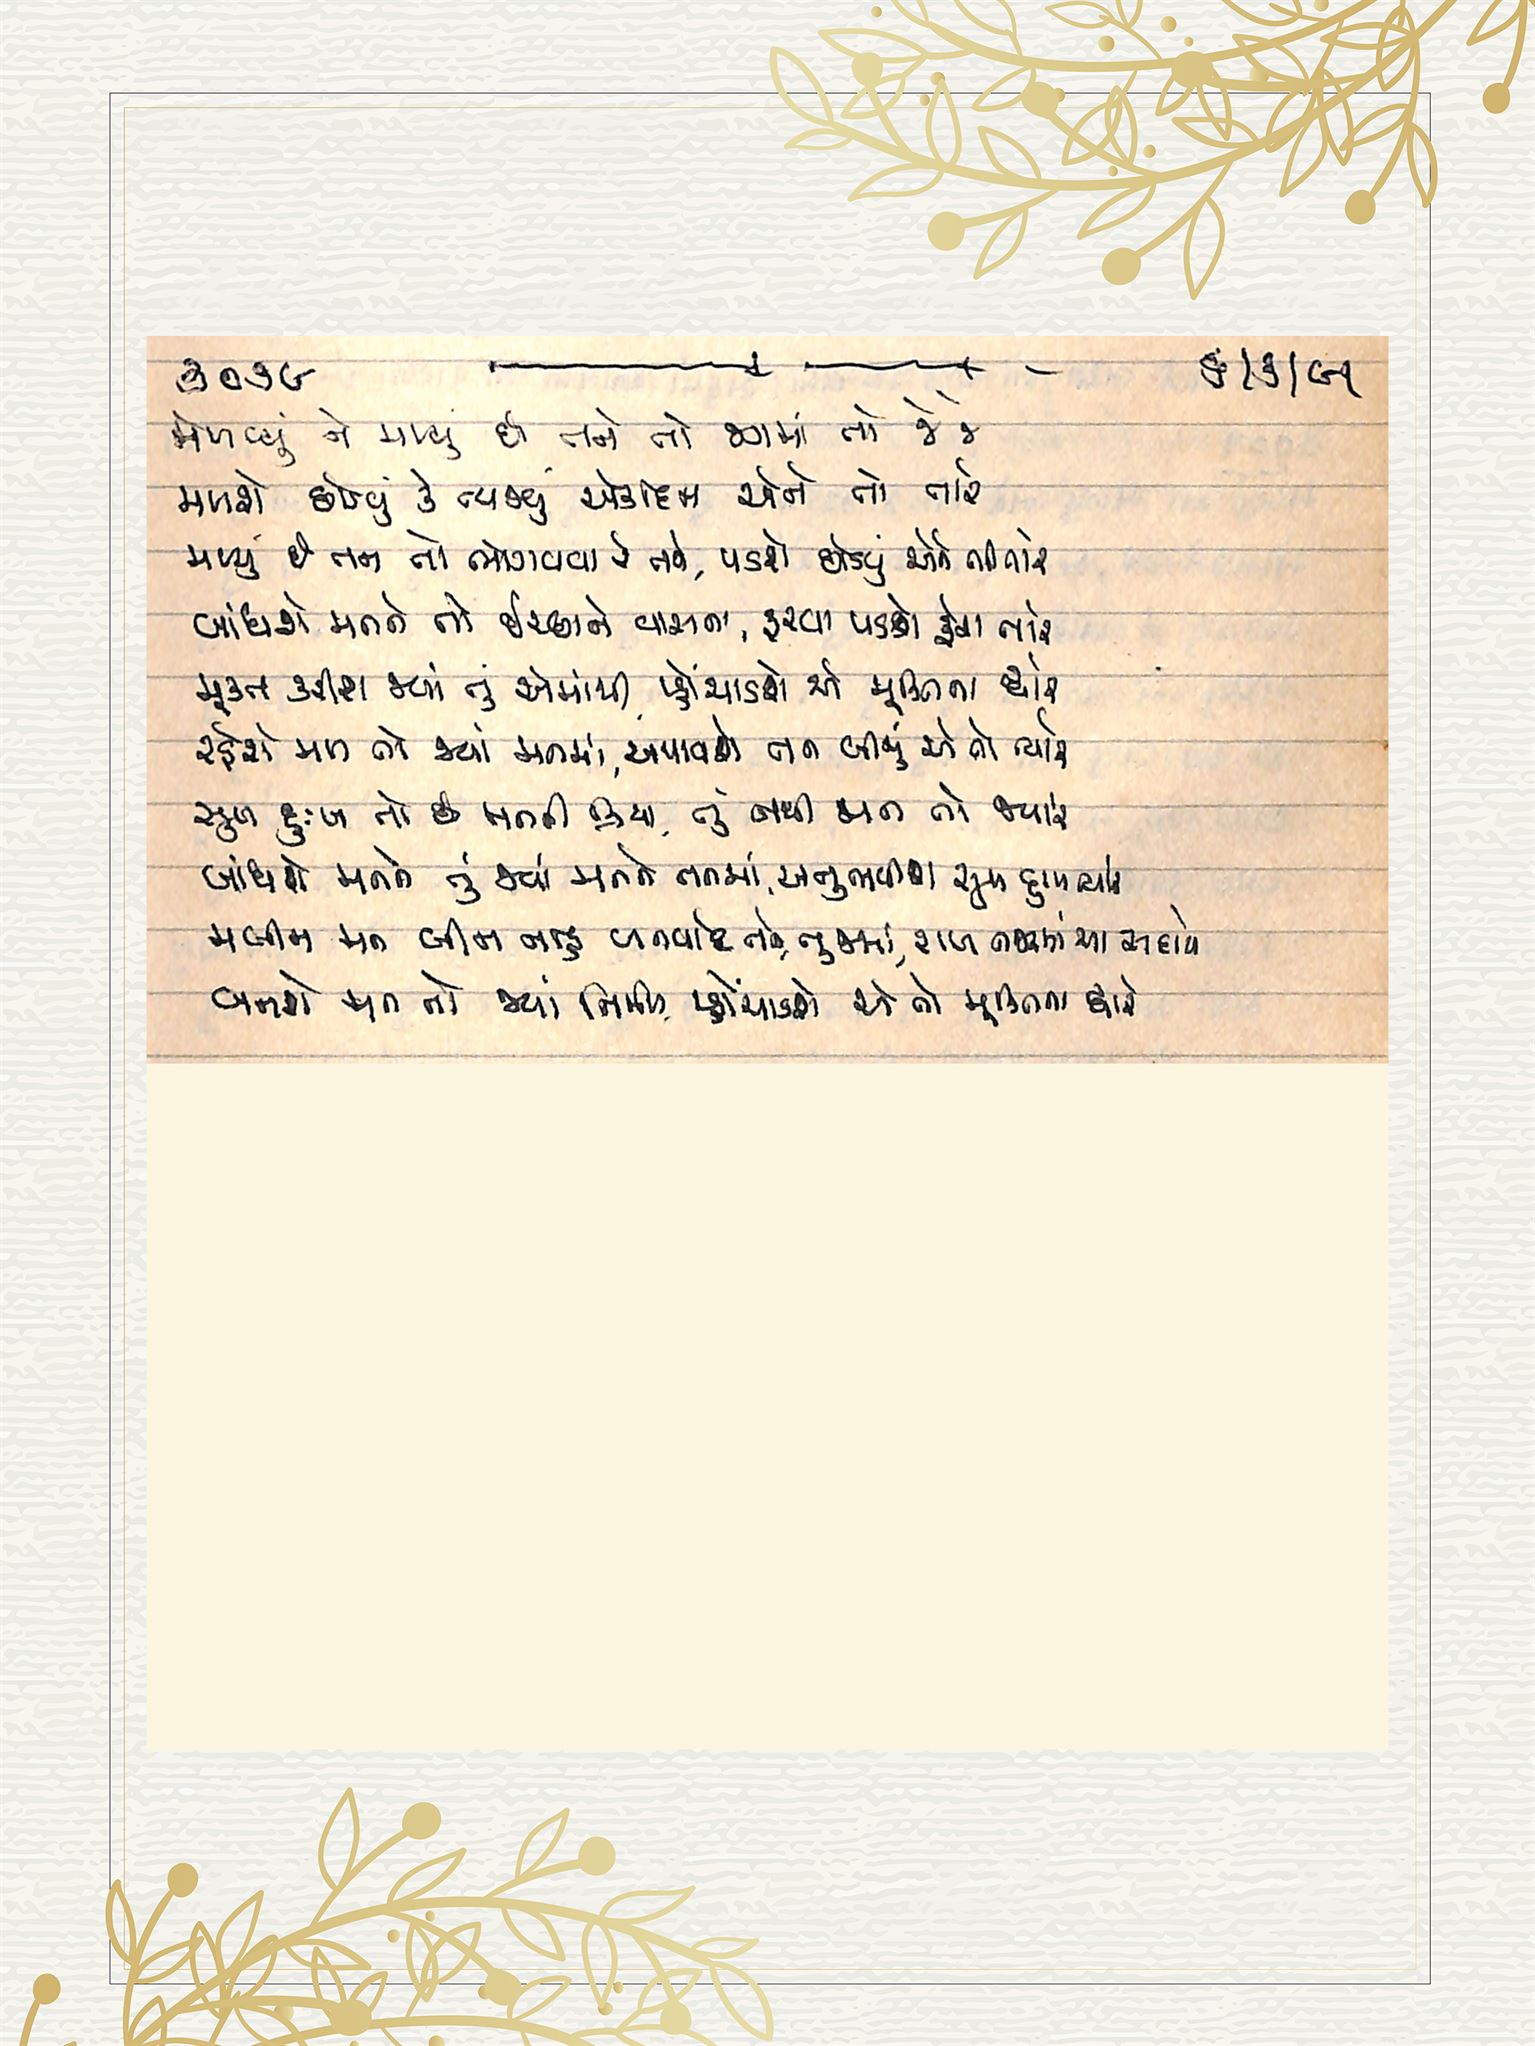 ૩૦૩૯
મેળવ્યું ને મળ્યું છે તને તો જગમાં તો જે જે
પડશે છોડવું ને ત્યજવું એકદિન એને તો તારે
મળ્યું છે તન તો ભોગવવા રે તને, પડશે છોડવું એને તો તારે
બાંધશે મનને તો ઈચ્છાને વાસના, ફરવા પડશે ફેરા તારે
મુક્ત કરીશ જ્યાં તું એમાંથી, પ્હોંચાડશે એ મુક્તિના દ્વારે
રહેશે મળ તો જ્યાં મનમાં, અપાવશે તન બીજું એ તો ત્યારે
સુખ દુઃખ તો છે મનની ક્રિયા, તું નથી મન તો જ્યારે
બાંધશે મનને તું જ્યાં મનને તનમાં, અનુભવીશ સુખ દુઃખ ત્યારે
મલીન મન લીન નહિ બનવા દે તને, તુજમાં, રાખ નજરમાં આ સદાયે
બનશે મન તો જ્યાં નિર્મળ, પ્હોંચાડશે એ તો મુક્તિના દ્વારે